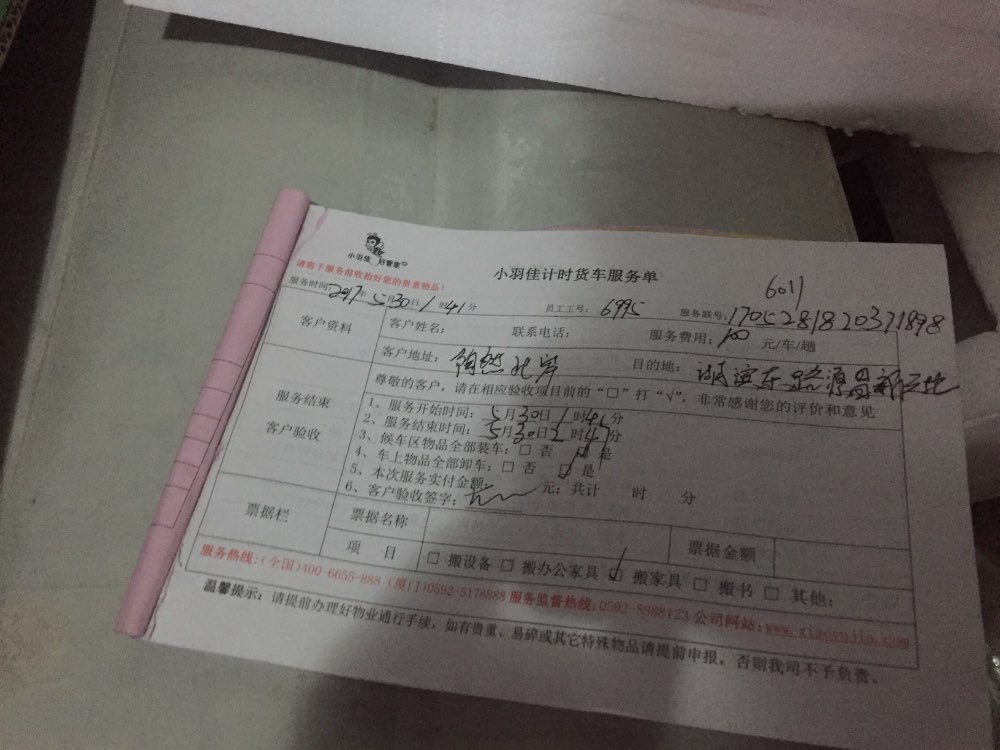 小羽佳 好管家
小羽佳计时货车服务单
请您于服务前收拾好您的贵重物品！
6011
服务时间：2017年5月30日1时41分 员工工号：6995 服务联号：1705281820371898
客户资料
客户姓名： 联系电话： 服务费用：100元/车/趟
客户地址： 陶然北岸 目的地：湖滨东路源昌新天地
服务结束
客户验收
尊敬的客户，请在相应验收项目前的“□”打“√”，非常感谢您的评价和意见
1、服务开始时间：5月30日1时41分
2、服务结束时间：5月30日2时41分
3、候车区物品全部装车：□ 否 □ 是
4、车上物品全部卸车：□ 否 □ 是
5、本次服务实付金额： 元；共计 时 分
6、客户验收签字：
票据栏
票据名称 票据金额
项 目 □ 搬设备 □ 搬办公家具 ☑ 搬家具 □ 搬书 □ 其他：
服务热线：(全国)400-6655-888 (厦门)0592-5178888 服务监督热线：0592-5888123 公司网站：www.xiaoyujia.com
温馨提示：请提前办理好物业通行手续，如有贵重、易碎或其它特殊物品请提前申报，否则我司不予负责。